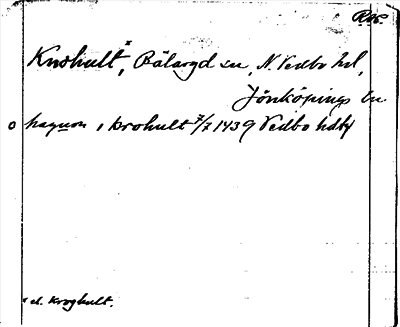 Krohult×, Bälaryd sn, N. Vedbo hd,
Jönköpings ln
o haquon i krohult 7/7 1439 Vedbo hdbf
× el. Kroghult.